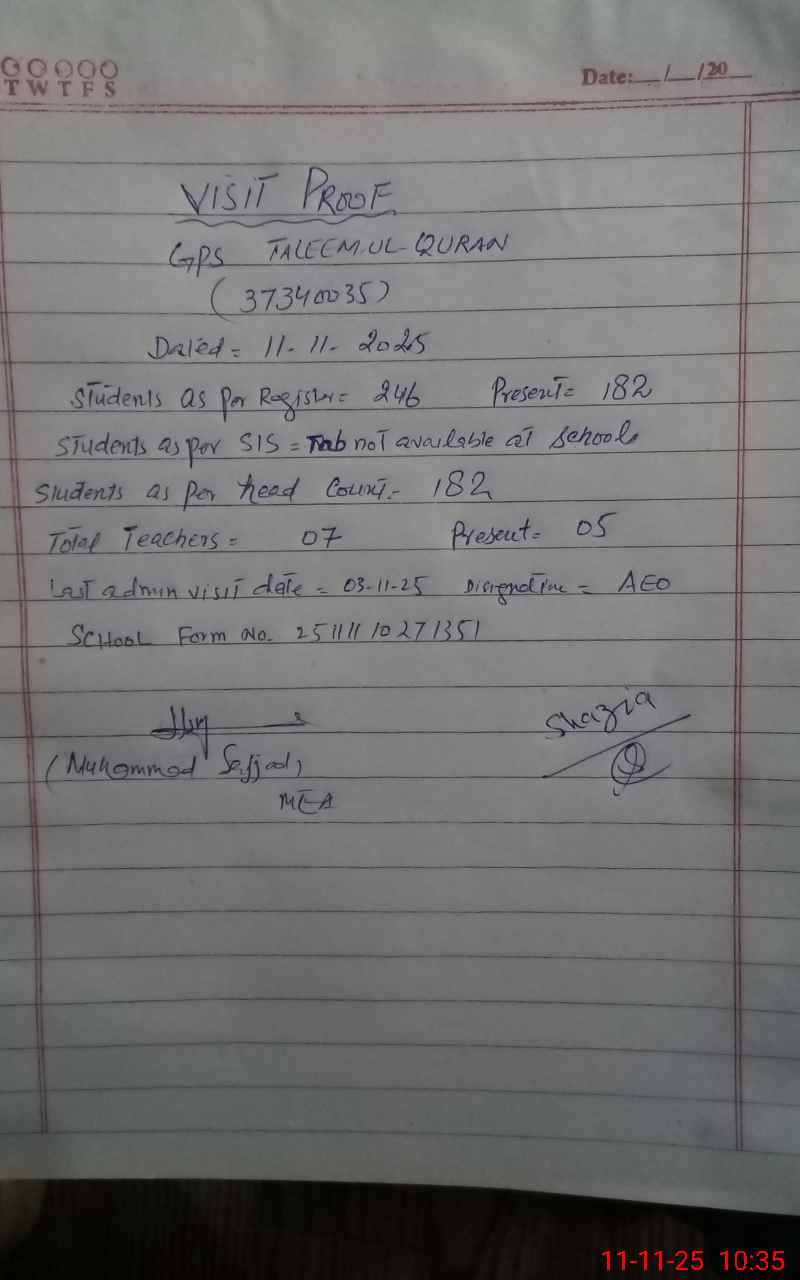 T W T F S
Date:__/__/20__
VISIT PROOF
GPS TALEEM-UL-QURAN
(37340035)
Dated = 11-11-2025
Students as per Register = 246 Present = 182
Students as per SIS = Tab not available at school
Students as per head Count = 182
Total Teachers = 07 Present = 05
Last admin visit date = 03-11-25 = AEO
SCHOOL Form No. 25111110271351
Shazia
(Muhammad Sajjad)
MEA
11-11-25 10:35